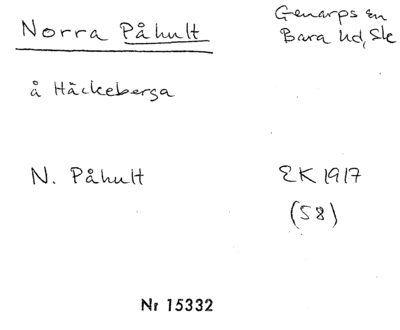 Norra Påhult
Genarps sn
Bara hd, Sk
å Häckeberga
N. Påhult
EK 1917
(58)
Nr 15332